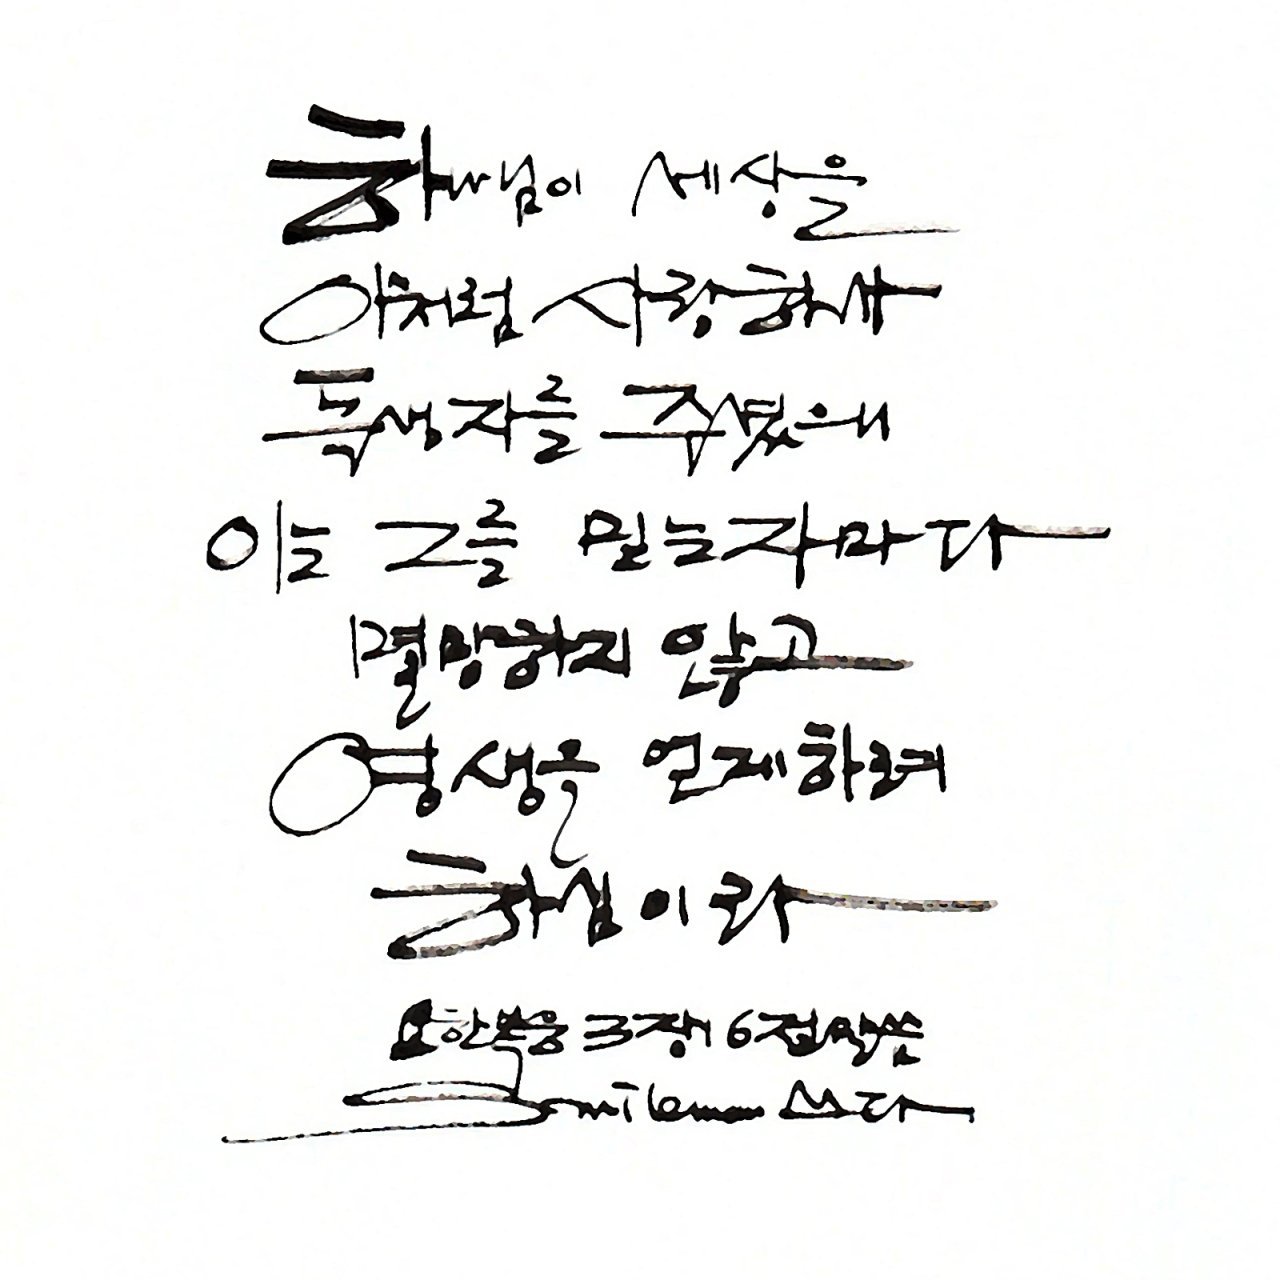 하나님이 세상을
이처럼 사랑하사
독생자를 주셨으니
이는 그를 믿는자마다
멸망하지 않고
영생을 얻게하려
하심이라
요한복음 3장 16절 말씀
Smileman 쓰다